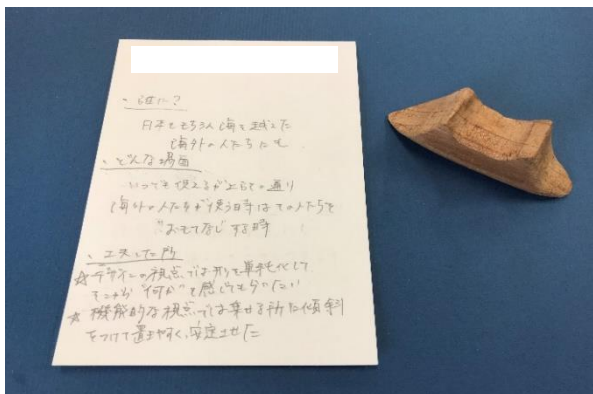 、誰に?
日本はもちろん海を越えた
海外の人たちにも
、どんな場面
いつでも使えるが上らの通り
海外の人たちが使う時はその人たちを
"おもてなし"する時
、工夫した所
☆デザインの視点では形を単純化して
そこから"何か"を感じてもらいたい
☆機能的な視点では乗せる所に傾斜
をつけて置きやすく、安定させた